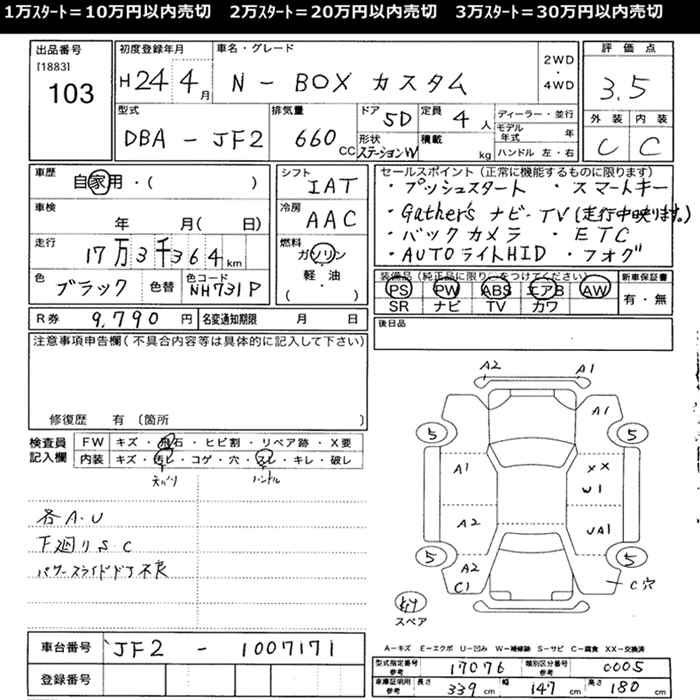 1万ｽﾀｰﾄ＝10万円以内売切　2万ｽﾀｰﾄ＝20万円以内売切　3万ｽﾀｰﾄ＝30万円以内売切
出品番号 初度登録年月 車名・グレード 評価点
[1883]
103 H24年4月 N－BOX カスタム 2WD・4WD 3.5
型式 排気量 ドア 5D 定員 4人 ディーラー・並行 外装 内装
DBA－JF2 660CC 形状 ステーションW 積載 kg モデル年式 年 C C
ハンドル 左・右
車歴 自家用・( ) シフト IAT セールスポイント (正常に機能するものに限ります)
・プッシュスタート ・スマートキー
車検 年 月( 日) 冷房 AAC ・Gathers ナビ・TV(走行中映ります。)
走行 17万3千364km 燃料 ガソリン ・バックカメラ ・ETC
軽・油 ・AUTOライトHID ・フォグ
色 ブラック 色替 色コード NH731P ( )
装備品 (純正品に限り○をつけてください) 新車保証書
PS PW ABS エアB AW 有・無
SR ナビ TV カワ
R券 9,790円 名変通知期限 月 日 後日品
注意事項申告欄(不具合内容等は具体的に記入して下さい)
修復歴 有 (箇所 )
検査員記入欄 FW キズ・飛石・ヒビ割・リペア跡・X要
内装 キズ・汚レ・コゲ・穴・スレ・キレ・破レ
天バリ ハンドル
各A.U
下廻りS.C
パワースライドドア不良
A2 A1
A1
5 5
A1 XX
W1
A2 UA1
5 5
A2
C1 C穴
スペア
A－キズ E－エクボ U－凹み W－補修跡 S－サビ C－腐食 XX－交換済
車台番号 JF2－1007171 型式指定番号参考 17076 類別区分番号参考 0005
登録番号 車庫証明用参考 長さ 339cm 幅 147cm 高さ 180cm